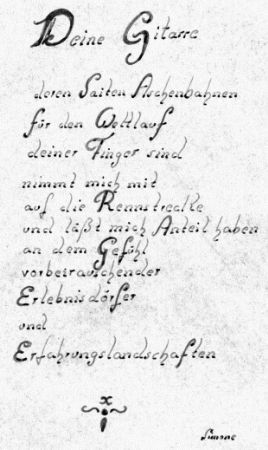 Deine Gitarre
deren Saiten Aschenbahnen
für den Wettlauf
deiner Finger sind
nimmt mich mit
auf die Rennstrecke
und läßt mich Anteil haben
an dem Gefühl
vorbeirauschender
Erlebnisdörfer
und
Erfahrungslandschaften
Simone